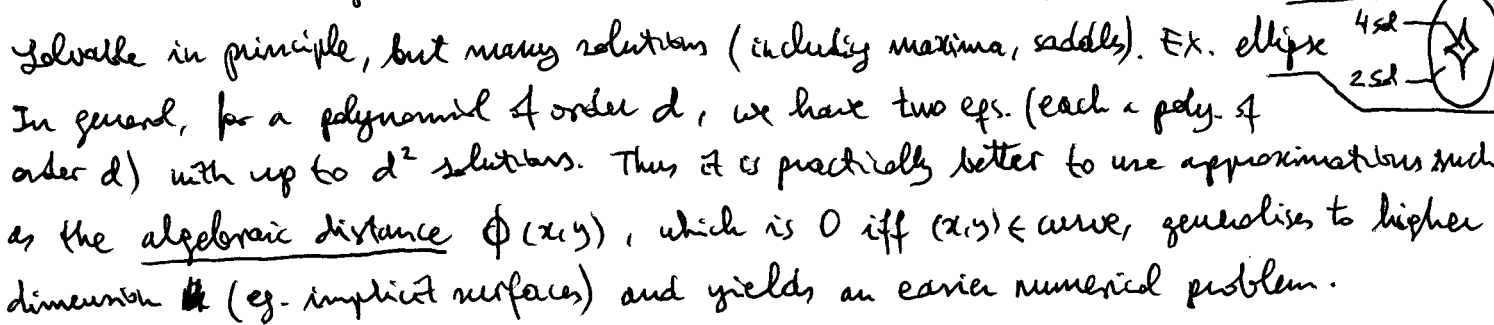 solvable in principle, but many solutions (including maxima, saddles). Ex. ellipse
4 sol
2 sol
In general, for a polynomial of order d, we have two eqs. (each a poly. of
order d) with up to d² solutions. Thus it is practically better to use approximations such
as the algebraic distance ϕ(x,y), which is 0 iff (x,y)∈ curve, generalises to higher
dimension (eg. implicit surfaces) and yields an easier numerical problem.